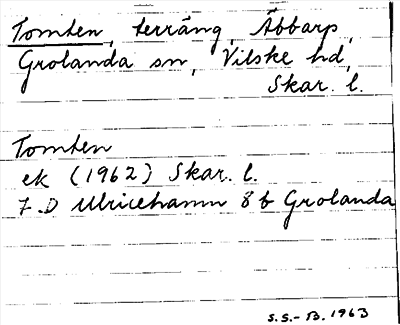 Tomten, terräng, Äbbarp,
Grolanda sn, Vilske hd,
Skar. l.
Tomten
ek (1962) Skar. l.
7.D Ulricehamn 8 b Grolanda
S.S.-B. 1963